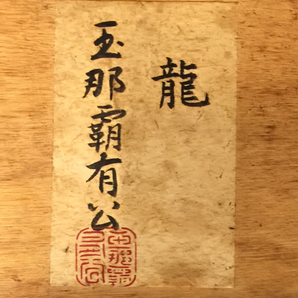 龍
玉那覇有公